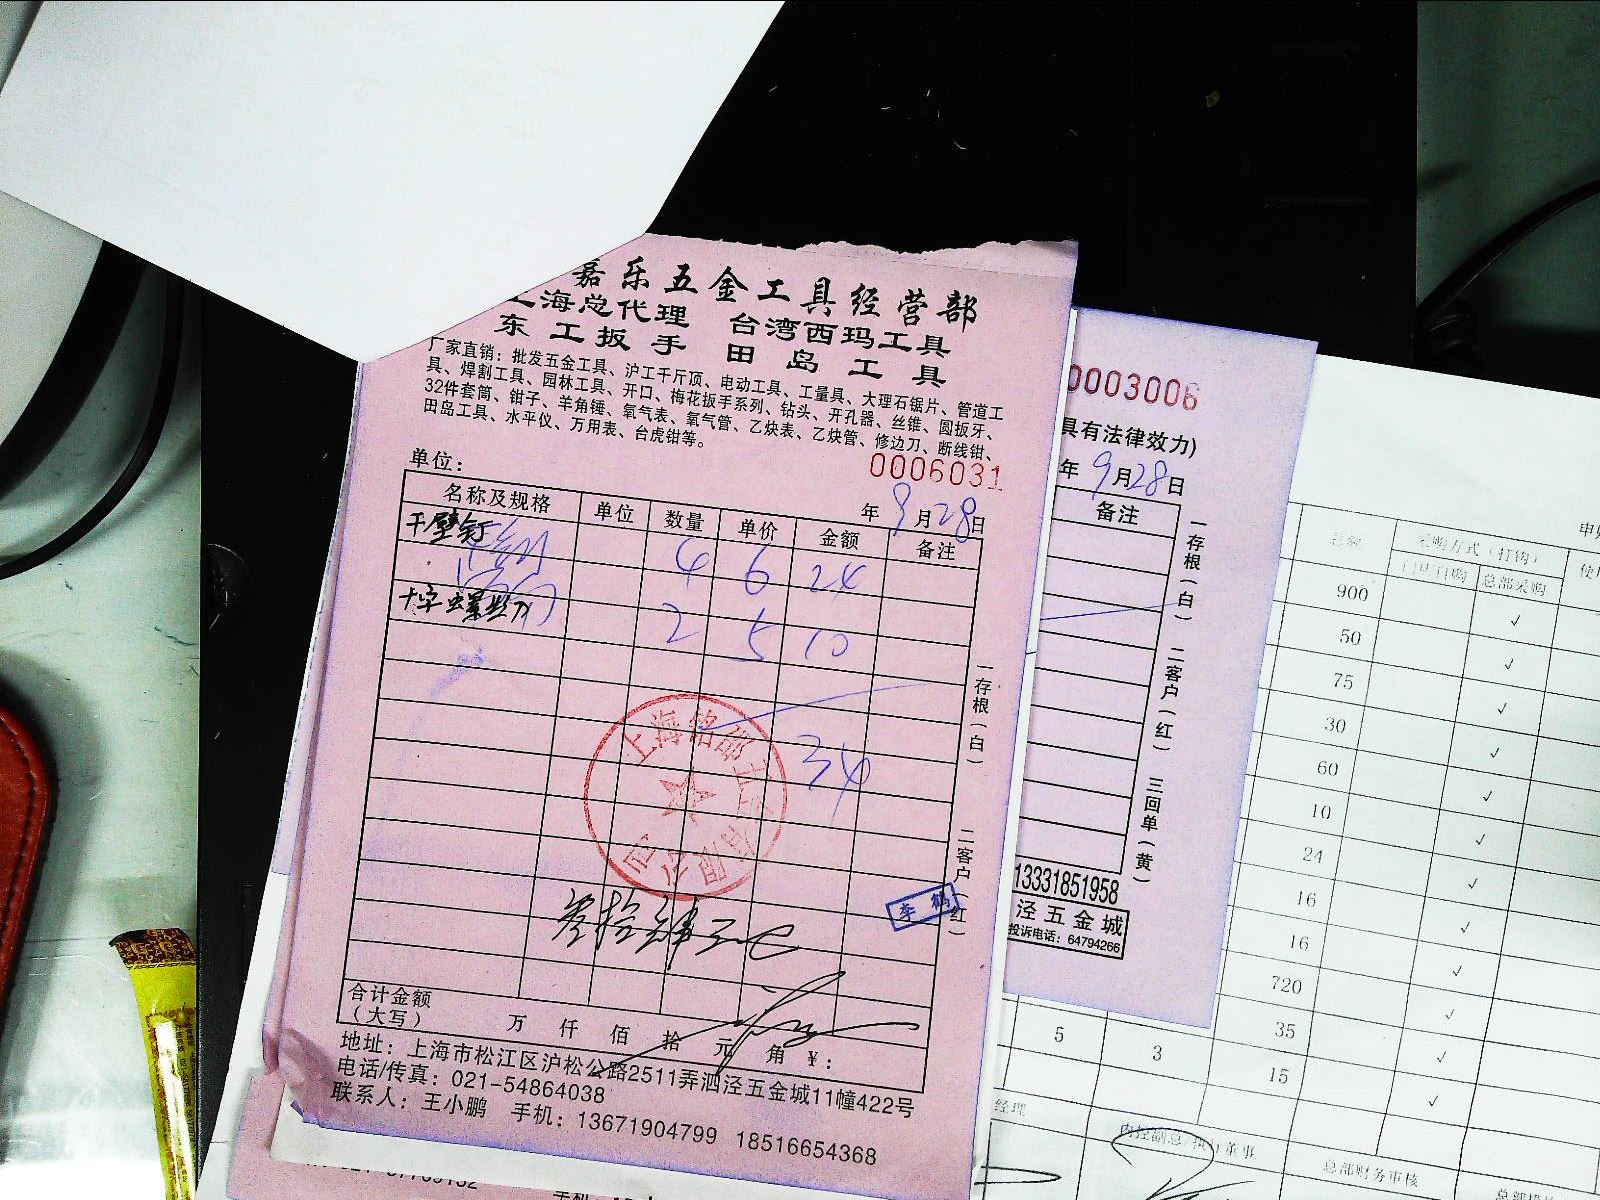 嘉乐五金工具经营部
上海总代理 台湾西玛工具
东工扳手 田岛工具
厂家直销：批发五金工具、沪工千斤顶、电动工具、工量具、大理石锯片、管道工
具、焊割工具、园林工具、开口、梅花扳手系列、钻头、开孔器、丝锥、圆扳牙、
32件套筒、钳子、羊角锤、氧气表、氧气管、乙炔表、乙炔管、修边刀、断线钳、
田岛工具、水平仪、万用表、台虎钳等。
0006031
单位：
年 9月28日
名称及规格 单位 数量 单价 金额 备注
干壁钉 4 6 24
十字螺丝刀 2 5 10
34
上海铭邵五金有限公司
叁拾肆元
李鹤
合计金额
（大写） 万 仟 佰 拾 元 角 ¥：
地址：上海市松江区沪松公路2511弄泗泾五金城11幢422号
电话/传真：021-54864038
联系人：王小鹏 手机：13671904799 18516654368
一存根（白） 二客户（红）
0003006
具有法律效力)
年 9月28日
备注
一存根（白） 二客户（红） 三回单（黄）
13331851958
泾五金城
投诉电话：64794266
总额 采购方式（打钩）
门店自购 总部采购
900 ✓
50 ✓
75 ✓
30 ✓
60 ✓
10 ✓
24 ✓
16 ✓
16 ✓
720 ✓
5 3 35 ✓
15 ✓
经理
内控副总/执行董事
总部财务审核